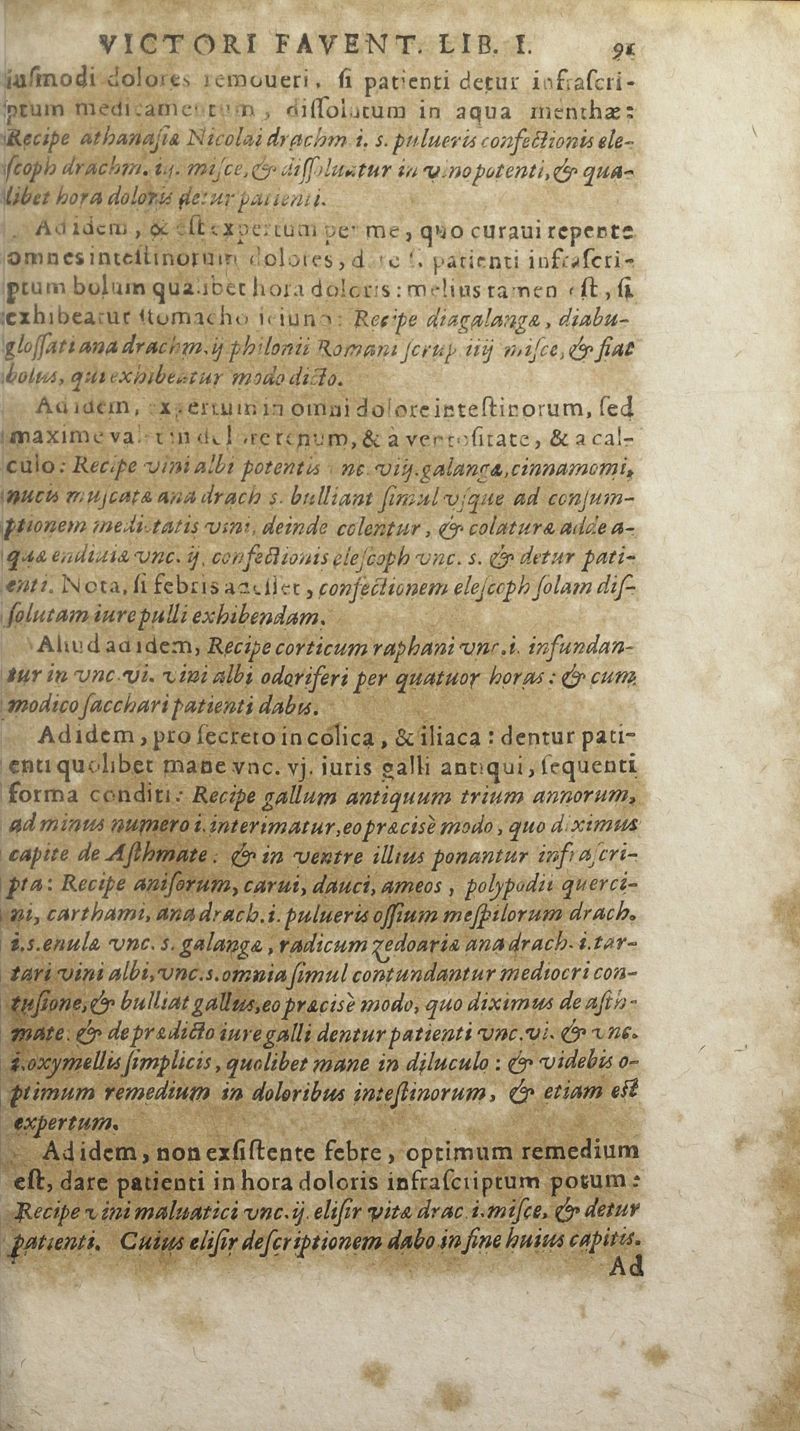 VICTORI FAVENT. LIB. I. 91
iuſmodi dolores remoueri, ſi patienti detur infraſcri-
ptum medicamentum, diſſolutum in aqua menthæ:
Recipe athanaſiæ Nicolai drachm. i. s. pulueris confectionis ele-
ſcoph drachm. ij. miſce, & diſſoluatur in vino potenti, & qua-
libet hora doloris detur patienti.
Ad idem, & eſt expertum per me, quo curaui repente
omnes inteſtinorum dolores, detur patienti infraſcri-
ptum bolum qualibet hora doloris: melius tamen eſt, ſi
exhibeatur ſtomacho ieiuno: Recipe diagalangæ, diabu-
gloſſati ana drachm. ij philonii Romani ſcrup. iiij miſce, & fiat
bolus, qui exhibeatur modo dicto.
Ad idem, expertum in omni dolore inteſtinorum, ſed
maxime valet in dolore renum, & a ventoſitate, & a cal-
culo: Recipe vini albi potentis vnc. viij. galangæ, cinnamomi,
nucis muſcatæ ana drach s. bulliant ſimul vſque ad conſum-
ptionem medietatis vini, deinde colentur, & colaturæ adde a-
quæ endiuiæ vnc. ij, confectionis eleſcoph vnc. s. & detur pati-
enti. Nota, ſi febris adeſſet, confectionem eleſcoph ſolam diſ-
ſolutam iure pulli exhibendam.
Aliud ad idem, Recipe corticum raphani vnc. i. infundan-
tur in vnc. vi. vini albi odoriferi per quatuor horas: & cum
modico ſacchari patienti dabis.
Ad idem, pro ſecreto in colica, & iliaca: dentur pati-
enti quolibet mane vnc. vj. iuris galli antiqui, ſequenti
forma conditi: Recipe gallum antiquum trium annorum,
ad minus numero i. interimatur, eo præciſè modo, quo diximus
capite de Aſthmate: & in ventre illius ponantur infraſcri-
pta: Recipe aniſorum, carui, dauci, ameos, polypodii querci-
ni, carthami, ana drach. i. pulueris oſſium meſpilorum drach.
i. s. enulæ vnc. s. galangæ, radicum zedoariæ ana drach. i. tar-
tari vini albi, vnc. s. omnia ſimul contundantur mediocri con-
tuſione, & bulliat gallus, eo præciſè modo, quo diximus de aſth-
mate. & de prædicto iure galli dentur patienti vnc. vi. & vnc.
i. oxymellis ſimplicis, quolibet mane in diluculo: & videbis o-
ptimum remedium in doloribus inteſtinorum, & etiam eſt
expertum.
Ad idem, non exſiſtente febre, optimum remedium
eſt, dare patienti in hora doloris infraſcriptum potum:
Recipe vini maluatici vnc. ij. eliſir vitæ drac. i. miſce. & detur
patienti. Cuius eliſir deſcriptionem dabo in fine huius capitis.
Ad